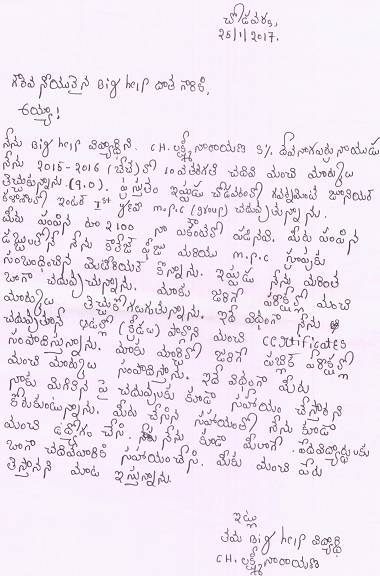 చోడవరం,
25/1/2017.
గౌరవనీయులైన Big help దాత గారికి,
అయ్యా!
నేను Big help విద్యార్థిని. CH. లక్ష్మీ నారాయణ S/o దేముడు నాయుడు
నేను 2015-2016 లో 10వ తరగతి చదివి మంచి మార్కులు
తెచ్చుకున్నాను. (9.0). ప్రస్తుతం ఇప్పుడు చోడవరంలో గవర్నమెంట్ జూనియర్
కళాశాలలో ఇంటర్ Ist year m.p.c (group) చదువుతున్నాను.
మీరు పంపిన రూ 2100 నా అకౌంట్ లో పడినవి. మీరు పంపిన
డబ్బులతో నేను కాలేజ్ ఫీజు మరియు m.p.c గ్రూపుకు
సంబంధించిన మెటీరియల్ కొన్నాను. ఇప్పుడు నేను మరింత
బాగా చదువుచున్నాను. మాకు జరిగే పరీక్షల్లో మంచి
మార్కులు తెచ్చుకోగలుగుతున్నాను. ఇదే విధంగా నేను
చదువుతూనే ఆటల్లో (క్రీడలు) పాల్గొని మంచి Certificates
సంపాదిస్తున్నాను. మాకు మార్చిలో జరిగే పబ్లిక్ పరీక్షల్లో
మంచి మార్కులు సంపాదిస్తాను. ఇదే విధంగా మీరు
నాకు మిగిలిన పై చదువులకు కూడా సహాయం చేస్తారని
కోరుకుంటున్నాను. మీరు చేసిన సహాయంతో నేను కూడా
మంచి ఉద్యోగం చేసి, నేను కూడా మీలాగే పేదవిద్యార్థులకు
బాగా చదివేవారికి సహాయంచేసి, మీకు మంచి పేరు
తెస్తానని మాట ఇస్తున్నాను.
ఇట్లు
తమ Big help విద్యార్థి
CH. లక్ష్మీ నారాయణ